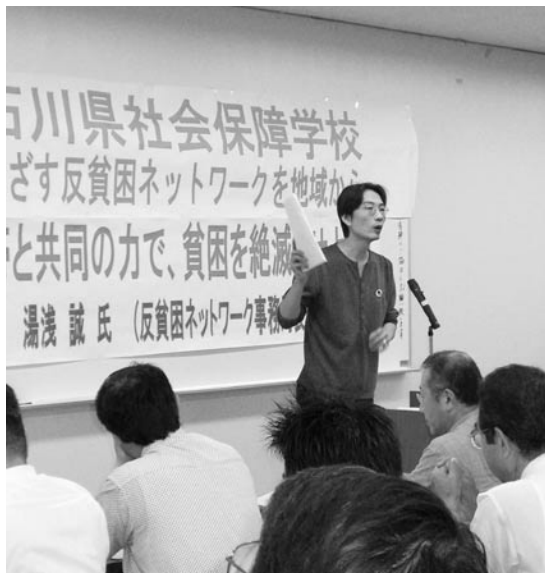 石川県社会保障学校
ざす反貧困ネットワークを地域から
と共同の力で、貧困を絶滅
湯浅 誠 氏 (反貧困ネットワーク事務